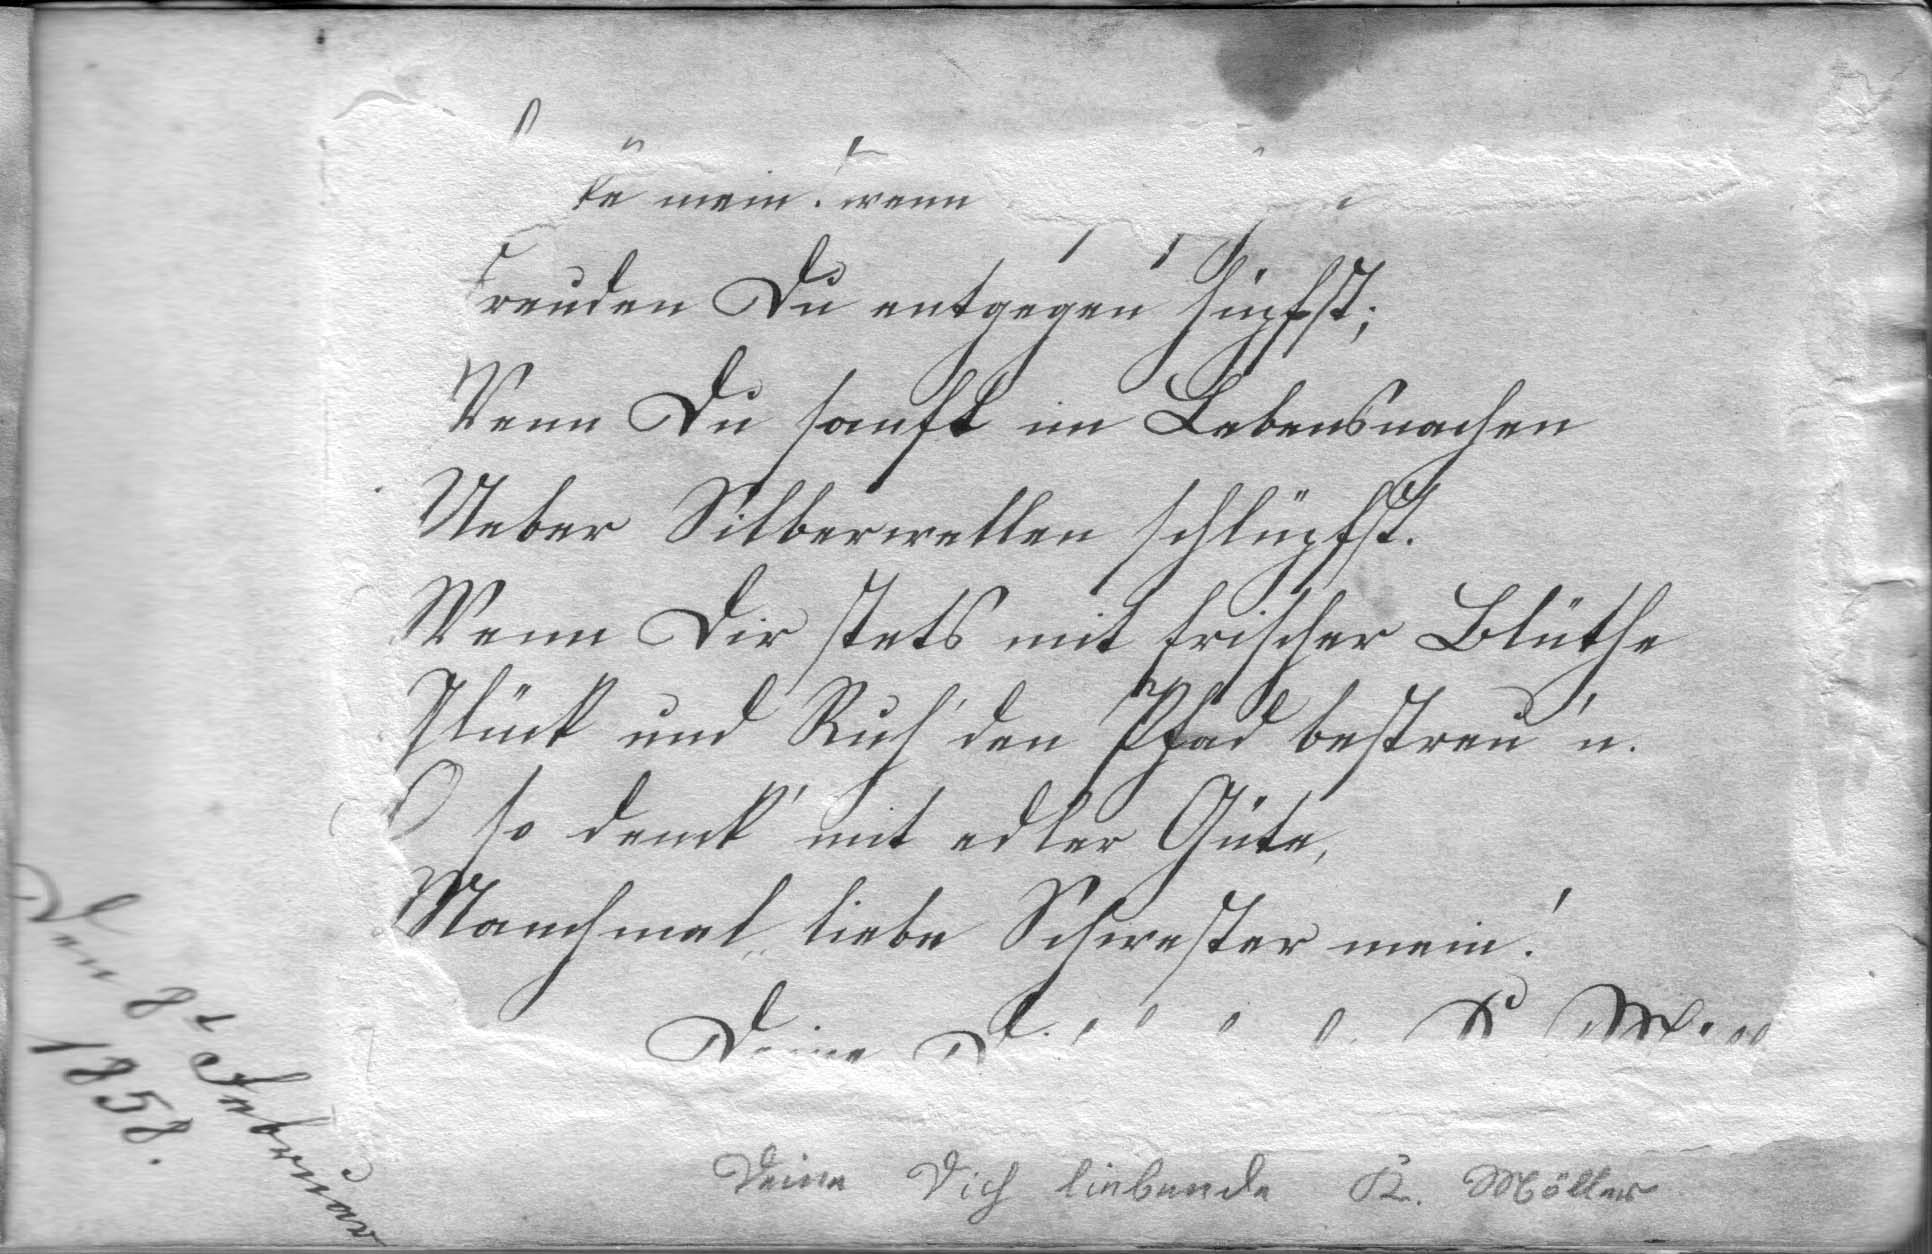 ke mein! wenn
Freuden Du entgegen hüpfst;
Wenn Du sanft im Lebensnachen
Ueber Silberwellen schlüpfst.
Wenn Dir stets mit frischer Blüthe
Glück und Ruh' den Pfad bestreu'n.
O so denk' mit edler Güte,
Manchmal liebe Schwester mein!
Deine
Deine Dich liebende K. Möller
Den 8t Februar
1858.